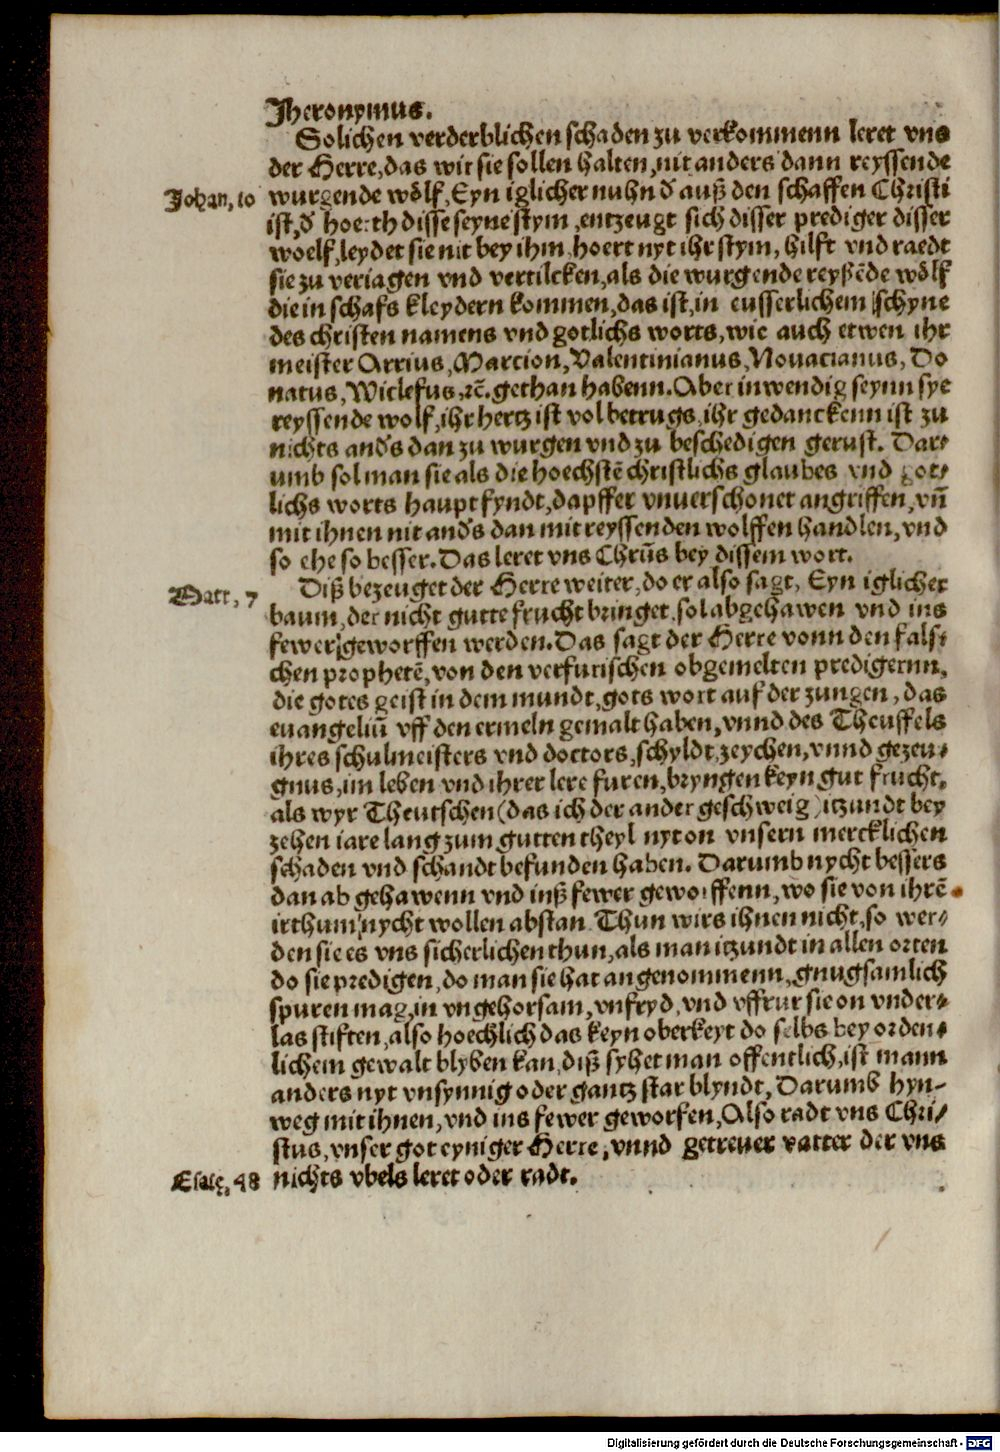 Jheronymus.
Solichen verderblichen schaden zu verkommenn leret vns
der Herre, das wir sie sollen halten, nit anders dann reyssende
Johan, 10
wurgende wölf, Eyn iglicher nuhn đ auß den schaffen Christi
ist, đ hoerth disse seyne stym, entzeugt sich disser prediger disser
woelf, leydet sie nit bey ihm, hoert nyt ihr stym, hilft vnd raedt
sie zu veriagen vnd vertilcken, als die wurgende reyßēde wölf
die in schafs kleydern kommen, das ist, in eusserlichem schyne
des christen namens vnd gotlichs worts, wie auch etwen ihr
meister Arrius, Marcion, Valentinianus, Nouatianus, Do
natus, Wiclefus, ꝛc̄. gethan habenn. Aber inwendig seynn sye
reyssende wolf, ihr hertz ist vol betrugs, ihr gedanckenn ist zu
nichts and's dan zu wurgen vnd zu beschedigen gerust. Dar⸗
umb sol man sie als die hoechstē christlichs glaubes vnd got⸗
lichs worts haupt fyndt, dapffer vnuerschonet angriffen, vn̄
mit ihnen nit and's dan mit reyssenden wolffen handlen, vnd
so ehe so besser. Das leret vns Chrūs bey dissem wort.
Matt, 7
Diß bezeuget der Herre weiter, do er also sagt, Eyn iglicher
baum, der nicht gutte frucht bringet, sol abgehawen vnd ins
fewer geworffen werden. Das sagt der Herre vonn den fals⸗
chen prophetē, von den verfurischen obgemelten predigernn,
die gotes geist in dem mundt, gots wort auf der zungen, das
euangeliū vff den ermeln gemalt haben, vnnd des Theuffels
ihres schulmeisters vnd doctors, schyldt, zeychen, vnnd gezeu⸗
gnus, im leben vnd ihrer lere furen, bryngen keyn gut frucht,
als wyr Theutschen (das ich der ander geschweig) itzundt bey
zehen iare lang zum gutten theyl nyt on vnsern mercklichen
schaden vnd schandt befunden haben. Darumb nycht bessers
dan ab gehawenn vnd inß fewer geworffenn, wo sie von ihrē
irthum nycht wollen abstan Thun wirs ihnen nicht, so wer⸗
den sie es vns sicherlichen thun, als man itzundt in allen orten
do sie predigen, do man sie hat angenommenn, gnugsamlich
spuren mag, in vngehorsam, vnfryd, vnd vffrur sie on vnder⸗
las stiften, also hoechlich das keyn oberkeyt do selbs bey orden⸗
lichem gewalt blyben kan, diß syhet man offentlich, ist mann
anders nyt vnsynnig oder gantz star blyndt, Darumb hyn⸗
weg mit ihnen, vnd ins fewer geworfen, Also radt vns Chri⸗
stus, vnser got eyniger Herre, vnnd getreuer vatter der vns
Esaie, 48
nichts vbels leret oder radt.
Digitalisierung gefördert durch die Deutsche Forschungsgemeinschaft - DFG